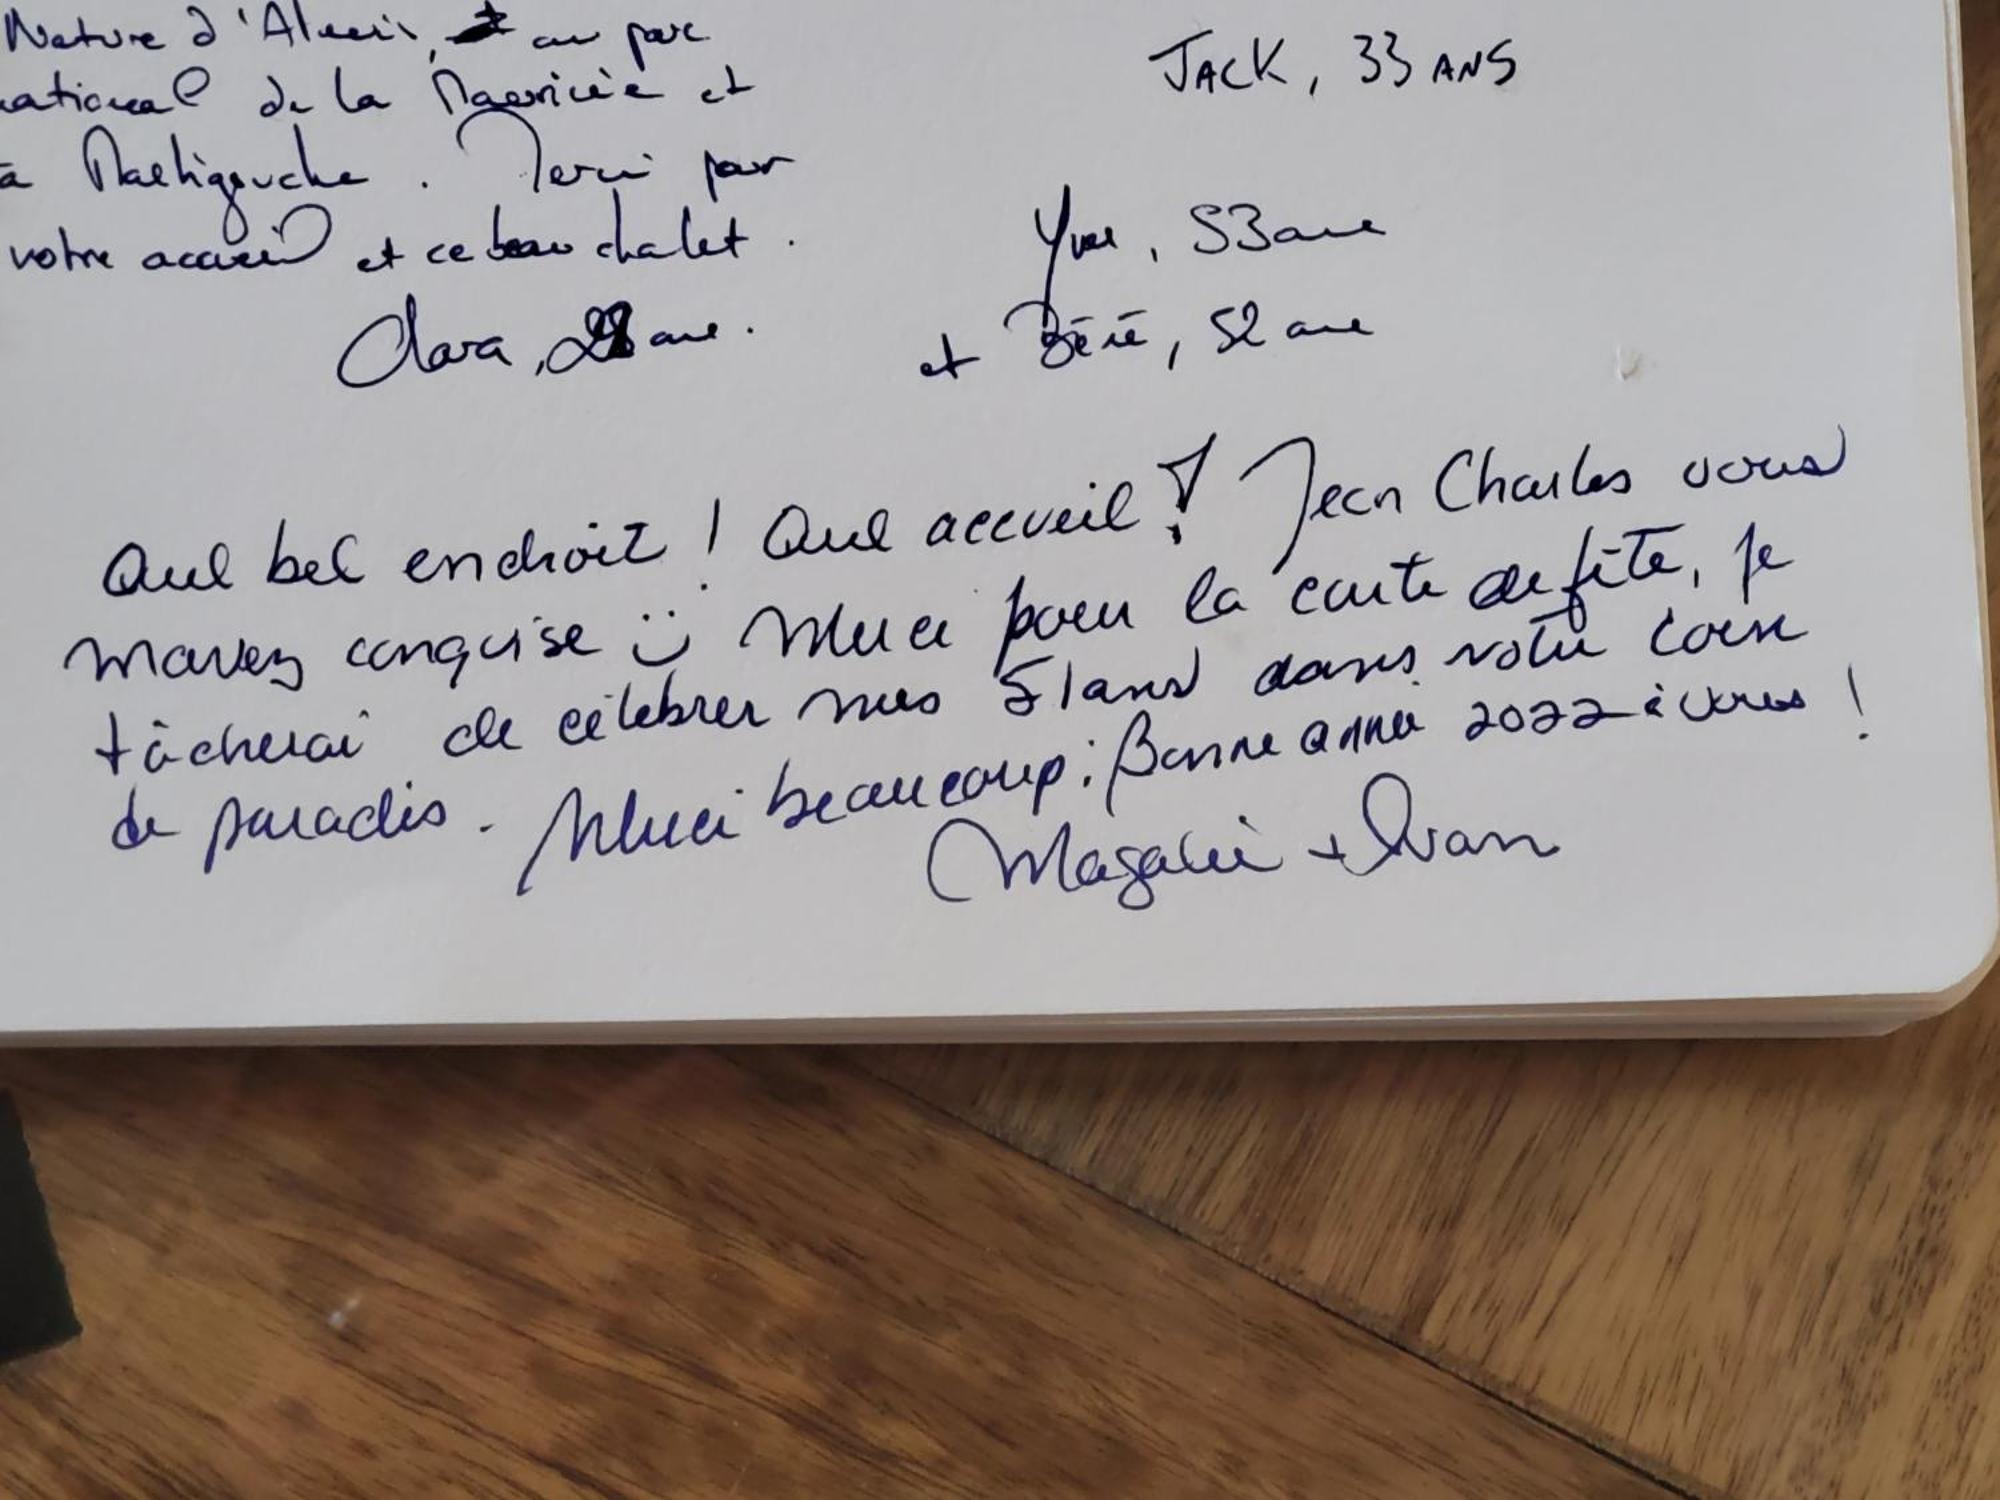 Nature d'Alexis, au parc
national de la Mauricie et
à Mastigouche. Merci pour
votre accueil et ce beau chalet.
Clara, ans.
JACK, 33 ANS
Yves, 53 ans
et Béné, 52 ans
Quel bel endroit! Quel accueil! Jean Charles vous
m'avez conquise :) Merci pour la carte de fête, je
tâcherai de célébrer mes 51 ans dans votre coin
de paradis. Merci beaucoup; Bonne année 2022 à vous!
Magalie + Ivan